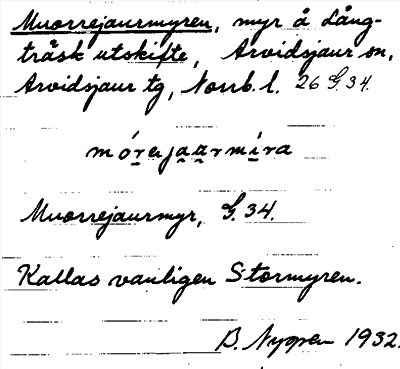 Muorrejaurmyren, myr å Lång-
träsk utskifte, Arvidsjaur sn,
Arvidsjaur tg, Norrb. l. 26 G. 34.
mórejaarmira
Muorrejaurmyr, G. 34.
Kallas vanligen Stormyren.
B. Nygren 1932.